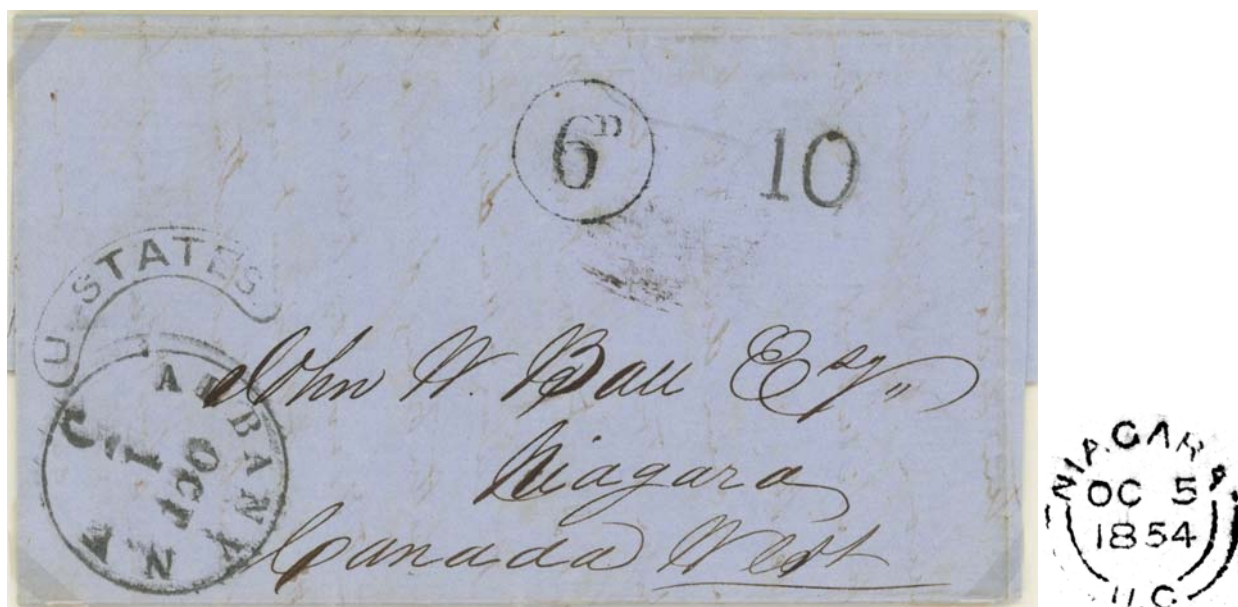 6D 10
U. STATES
ALBANY N.Y.
OCT
John W. Ball Esqr
Niagara
Canada West
NIAGARA
OC 5
1854
U.C